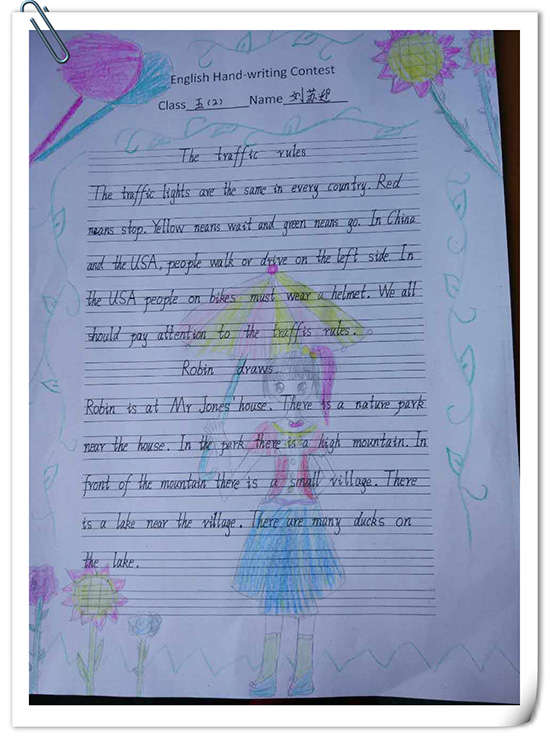 English Hand-writing Contest
Class 五(2) Name
The traffic rules
The traffic lights are the same in every country. Red
neans stop. Yellow neans wait and green neans go. In China
and the USA, people walk or drive on the left side. In
the USA people on bikes must wear a helmet. We all
should pay attention to the traffis rules.
Robin draws
Robin is at Mr Jones house. There is a nature park
near the house. In the park there is a high mountain. In
front of the mountain there is a small village. There
is a lake near the village. There are many ducks on
the lake.